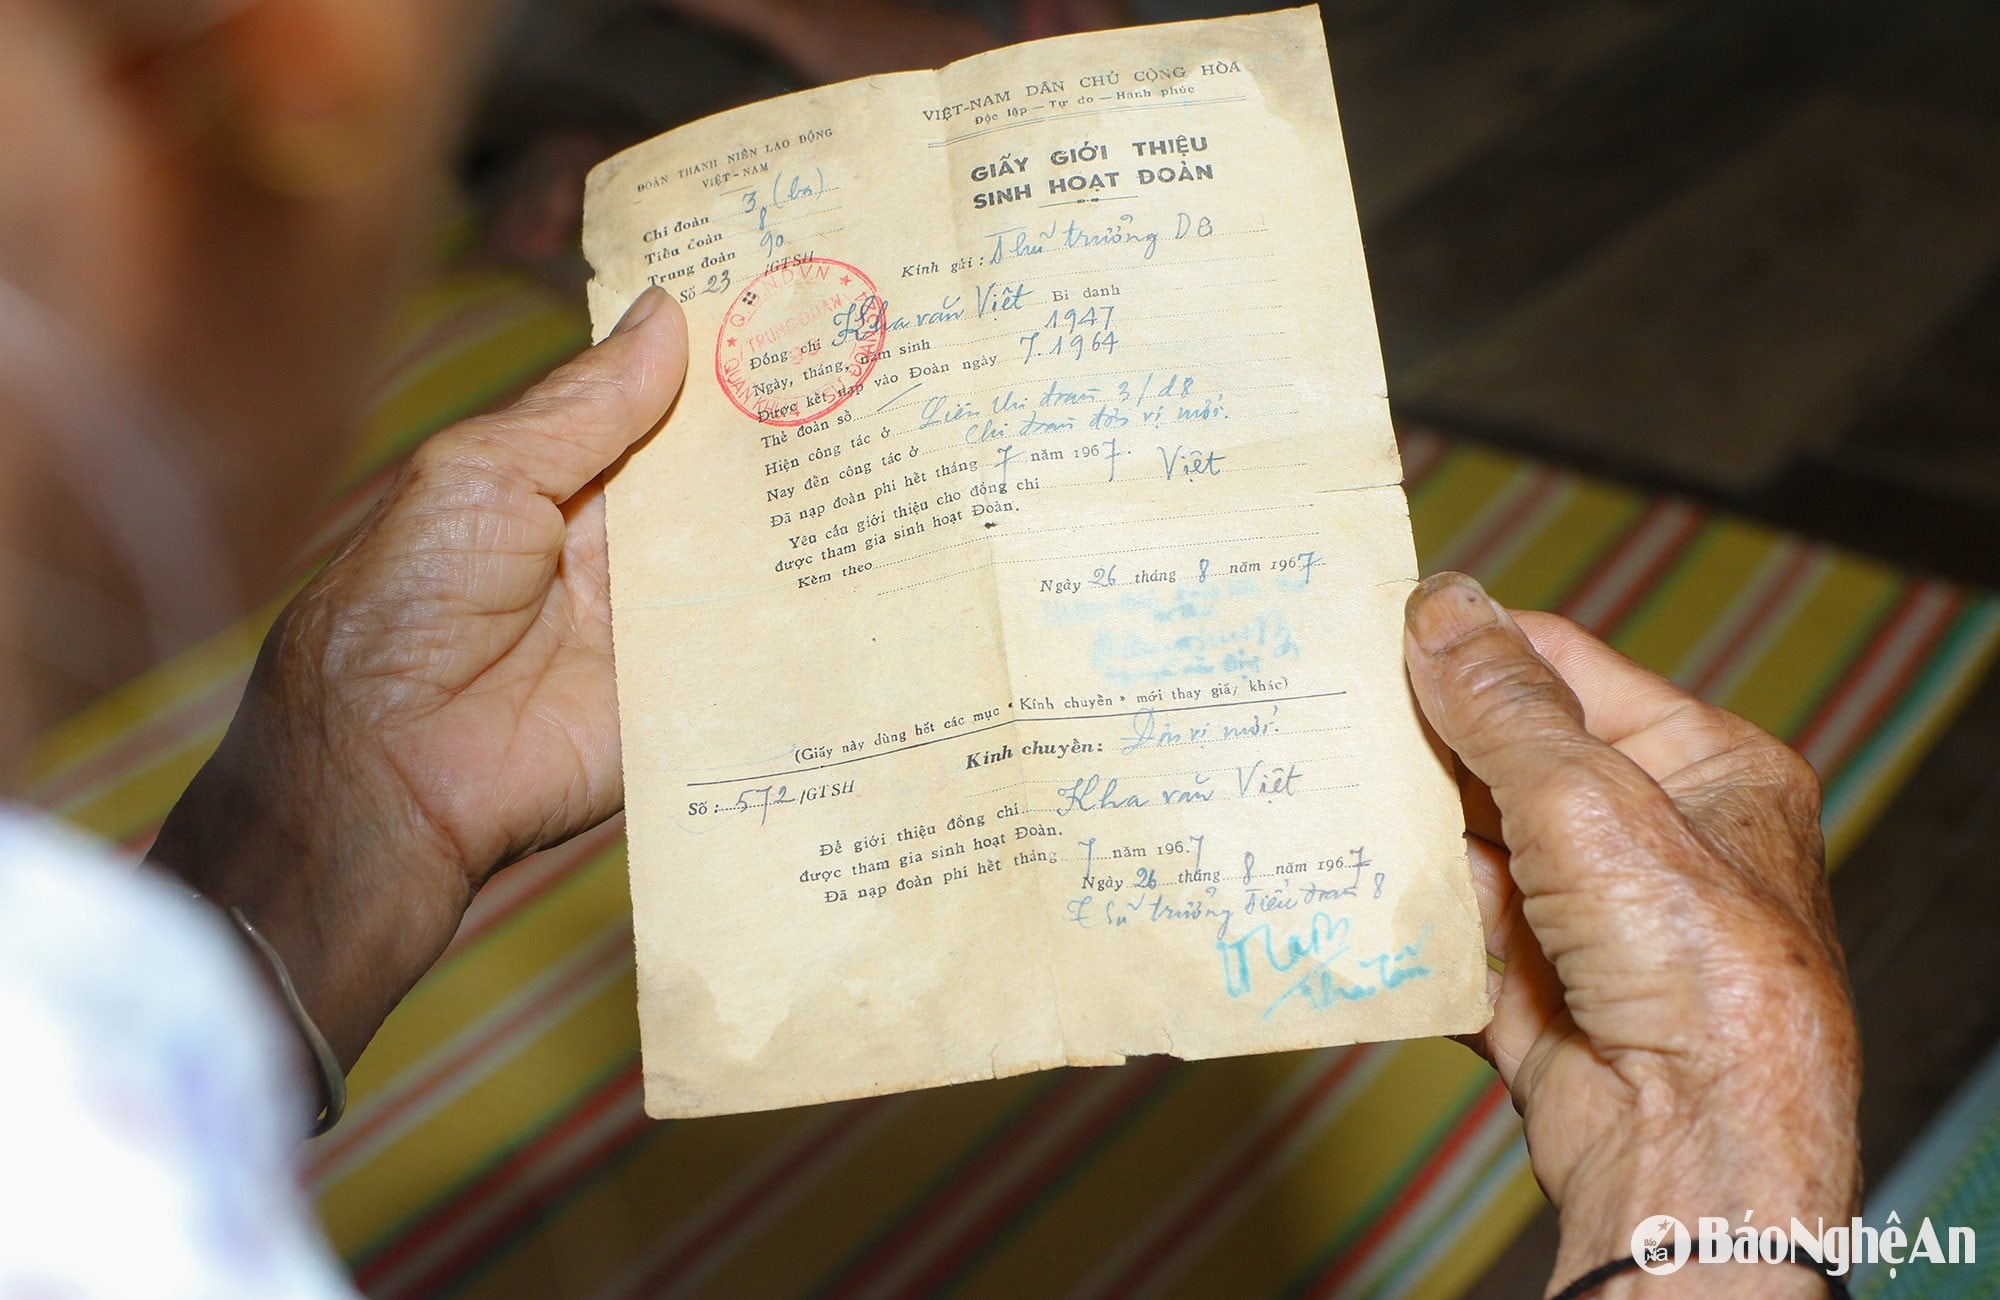 ĐOÀN THANH NIÊN LAO ĐỘNG
VIỆT-NAM
Chi đoàn 3 (ba)
Tiểu đoàn 8
Trung đoàn 90
Số 23 /GTSH
VIỆT-NAM DÂN CHỦ CỘNG HÒA
Độc lập — Tự do — Hạnh phúc
GIẤY GIỚI THIỆU
SINH HOẠT ĐOÀN
Kính gửi: Thủ trưởng D8
Q.Đ.N.D.V.N
TRUNG ĐOÀN
QUÂN KHU 4
Đồng chí Kha văn Việt Bí danh
Ngày, tháng, năm sinh 1947
Được kết nạp vào Đoàn ngày 7.1964
Thẻ đoàn số
Hiện công tác ở Liên chi đoàn 3/d8
Nay đến công tác ở Chi đoàn đơn vị mới.
Đã nạp đoàn phí hết tháng 7 năm 1967.
Yêu cầu giới thiệu cho đồng chí Việt
được tham gia sinh hoạt Đoàn.
Kèm theo
Ngày 26 tháng 8 năm 1967
(Giấy này dùng hết các mục « Kính chuyền » mới thay giấy khác)
Kính chuyền: Đơn vị mới.
Số: 572/GTSH
Để giới thiệu đồng chí Kha văn Việt
được tham gia sinh hoạt Đoàn.
Đã nạp đoàn phí hết tháng 7 năm 1967
Ngày 26 tháng 8 năm 1967
Thủ trưởng Tiểu đoàn 8
Báo Na BáoNghệAn